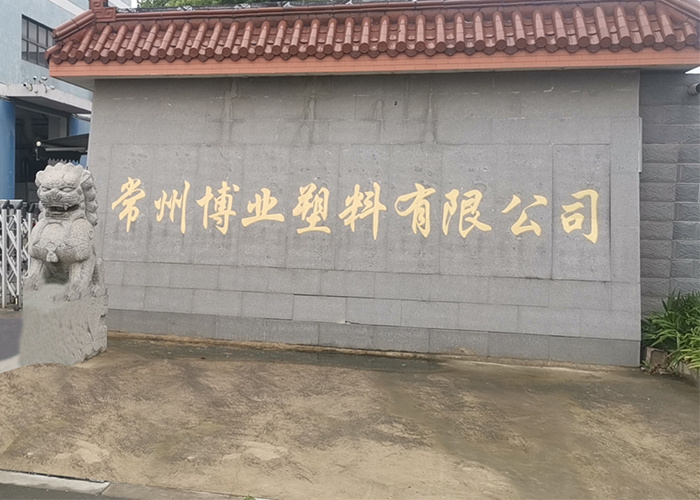 常州博业塑料有限公司